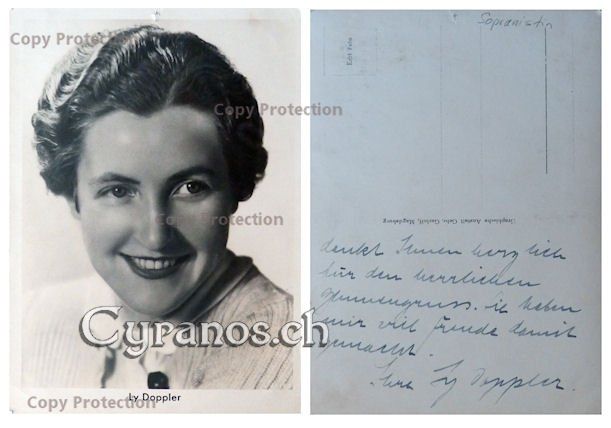 Copy Protection
Copy Protection
Copy Protection
Copy Protection
Cyranos.ch
Ly Doppler
Copy Protection
Sopranistin
Echt Foto
Graphische Anstalt Gebr. Garloff, Magdeburg
dankt Ihnen herzlich
für den herrlichen
Blumengruss. Sie haben
mir viel Freude damit
gemacht.
Ihre Ly Doppler.